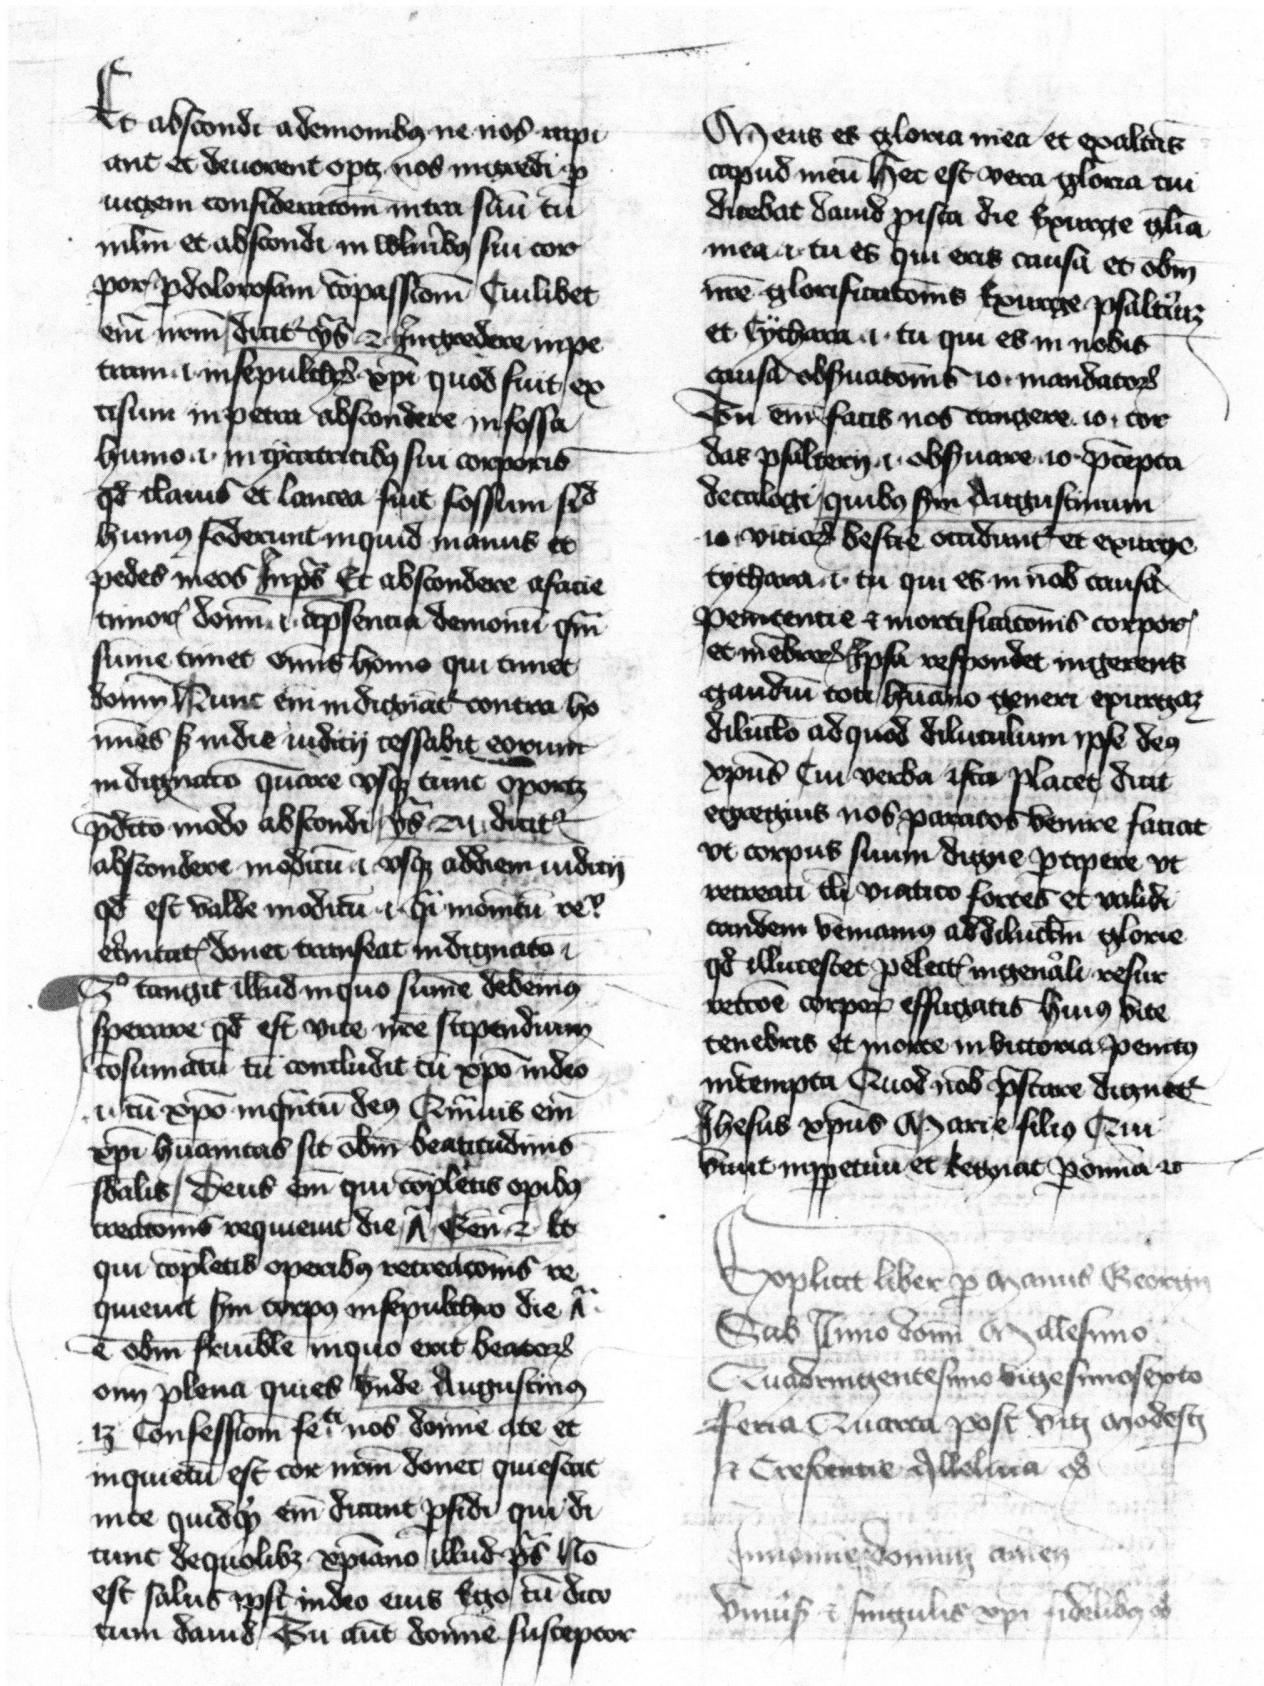 Et abscondi a demonibꝰ ne nos rapi
ant et deuorent oportꝫ nos ingredi ꝑ
iugem consideratōm intra sāū tū
mlm et abscondi in wlneribꝰ sui cor
poris ꝑ dolorosam cōpassiōm Cuilibet
em̄ nrm dicitᷣ ys̄ 2 Ingredere in pe
tram .i. in sepulchrum xp̄i quod fuit ex
cisum in petra abscondere in fossa
humo .i. in cycatricibꝰ sui corporis
qd̄ clauis et lancea fuit fossum sicud
humus foderunt inquid manus et
pedes meos In ps̄ Et abscondere a facie
timoris domī .i. a p̄sencia demonū quem
sūme timet om̄is homo qui timet
domī Nunc em̄ indignātᷣ contra ho
mines sꝫ in die iudicij cessabit eorum
indignatō quare vsqꝫ tunc oportꝫ
p̄dicto modo abscondi ys̄ dicitᷣ
abscondere modicū .i. vsqꝫ ad diem iudicij
qd̄ est valde modicū .i. qͣi momētū
et̄nitatis donec transeat indignatō .i.
3º tangit illud in quo sūme debemus
sperare qd̄ est vite nr̄e stipendium
cōsumatū cū concludit cū xp̄o in deo
.i. cū xp̄o inquātū deꝰ Quāuis em̄
xp̄i hūanitas sit obm̄ beatitudinis
Deus em̄ qui cōpletis opibꝰ
creatōnis requieuit die Gen̄ 2
qui cōpletis operibꝰ recreatōnis re
quieuit sm̄ corpꝰ in sepulchro die
ē obm̄ fruibile in quo erit beatorum
om̄ plena quies Vnde Augustinꝰ
Confessiom̄ fecisti nos domine ad te et
inquietū est cor nrm donec quiescat
in te quidqꝫ em̄ dicant ꝑfidi qui di
cunt de quolibꝫ xp̄iano illud ps̄ Nō
est salus ipsi in deo eius Ego cū dico
cum dauid Tu aut̄ domine susceptor
Meus es gloria mea et exaltās
capud meū Hec est vera gloria cui
dicebat dauid p̄ ista die Exurge gl̄ia
mea .i. tu es qui eris causa et obm̄
nr̄e glorificatōnis Exurge psalteriū
et Cythara .i. tu qui es in nobis
causa obs̄uatōnis 10 mandatorum
Tu em̄ facis nos tangere 10 cor
das psalterij .i. obs̄uare 10 p̄cepta
decalogi quibꝰ sm̄ Augustinum
10 viciorum bestie occiduntᷣ et exurge
cythara .i. tu qui es in nob̄ causa
penitentie et mortificatōnis corporis
et mēbrorum Ipsa respondet ingerens
gaudiū toti hūano generi exurgam
diluculo ad quod diluculum ipse deꝰ
xp̄us Cui verba ista placet dicit
egregius nos paratos venire faciat
vt corpus suum digne ꝑcipere vt
recreati tali viatico fortes et validi
tandem veniamꝰ ad diluculum glorie
qd̄ illucescet electis in genāli resur
rectōe corporis effugatis huiꝰ vite
tenebris et morte in victoria penitꝰ
intempta Quod nob̄ p̄stare dignetᷣ
Jhesus xp̄us Marie filiꝰ Qui
viuit in ꝑpetuū et Regnat ꝑ om̄ia
Explicit liber ꝑ manus Georgii
Sub Anno domī Millesimo
Quadringentesimo vigesimosexto
Feria Quarta post viti Modesti
et Crescentie Alleluia
In nomine domini amen
Vniūsis et singulis xp̄i fidelibꝰ